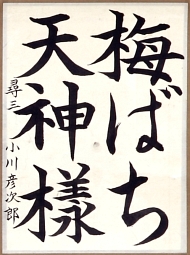 梅ばち
天神様
尋三 小川彦次郎